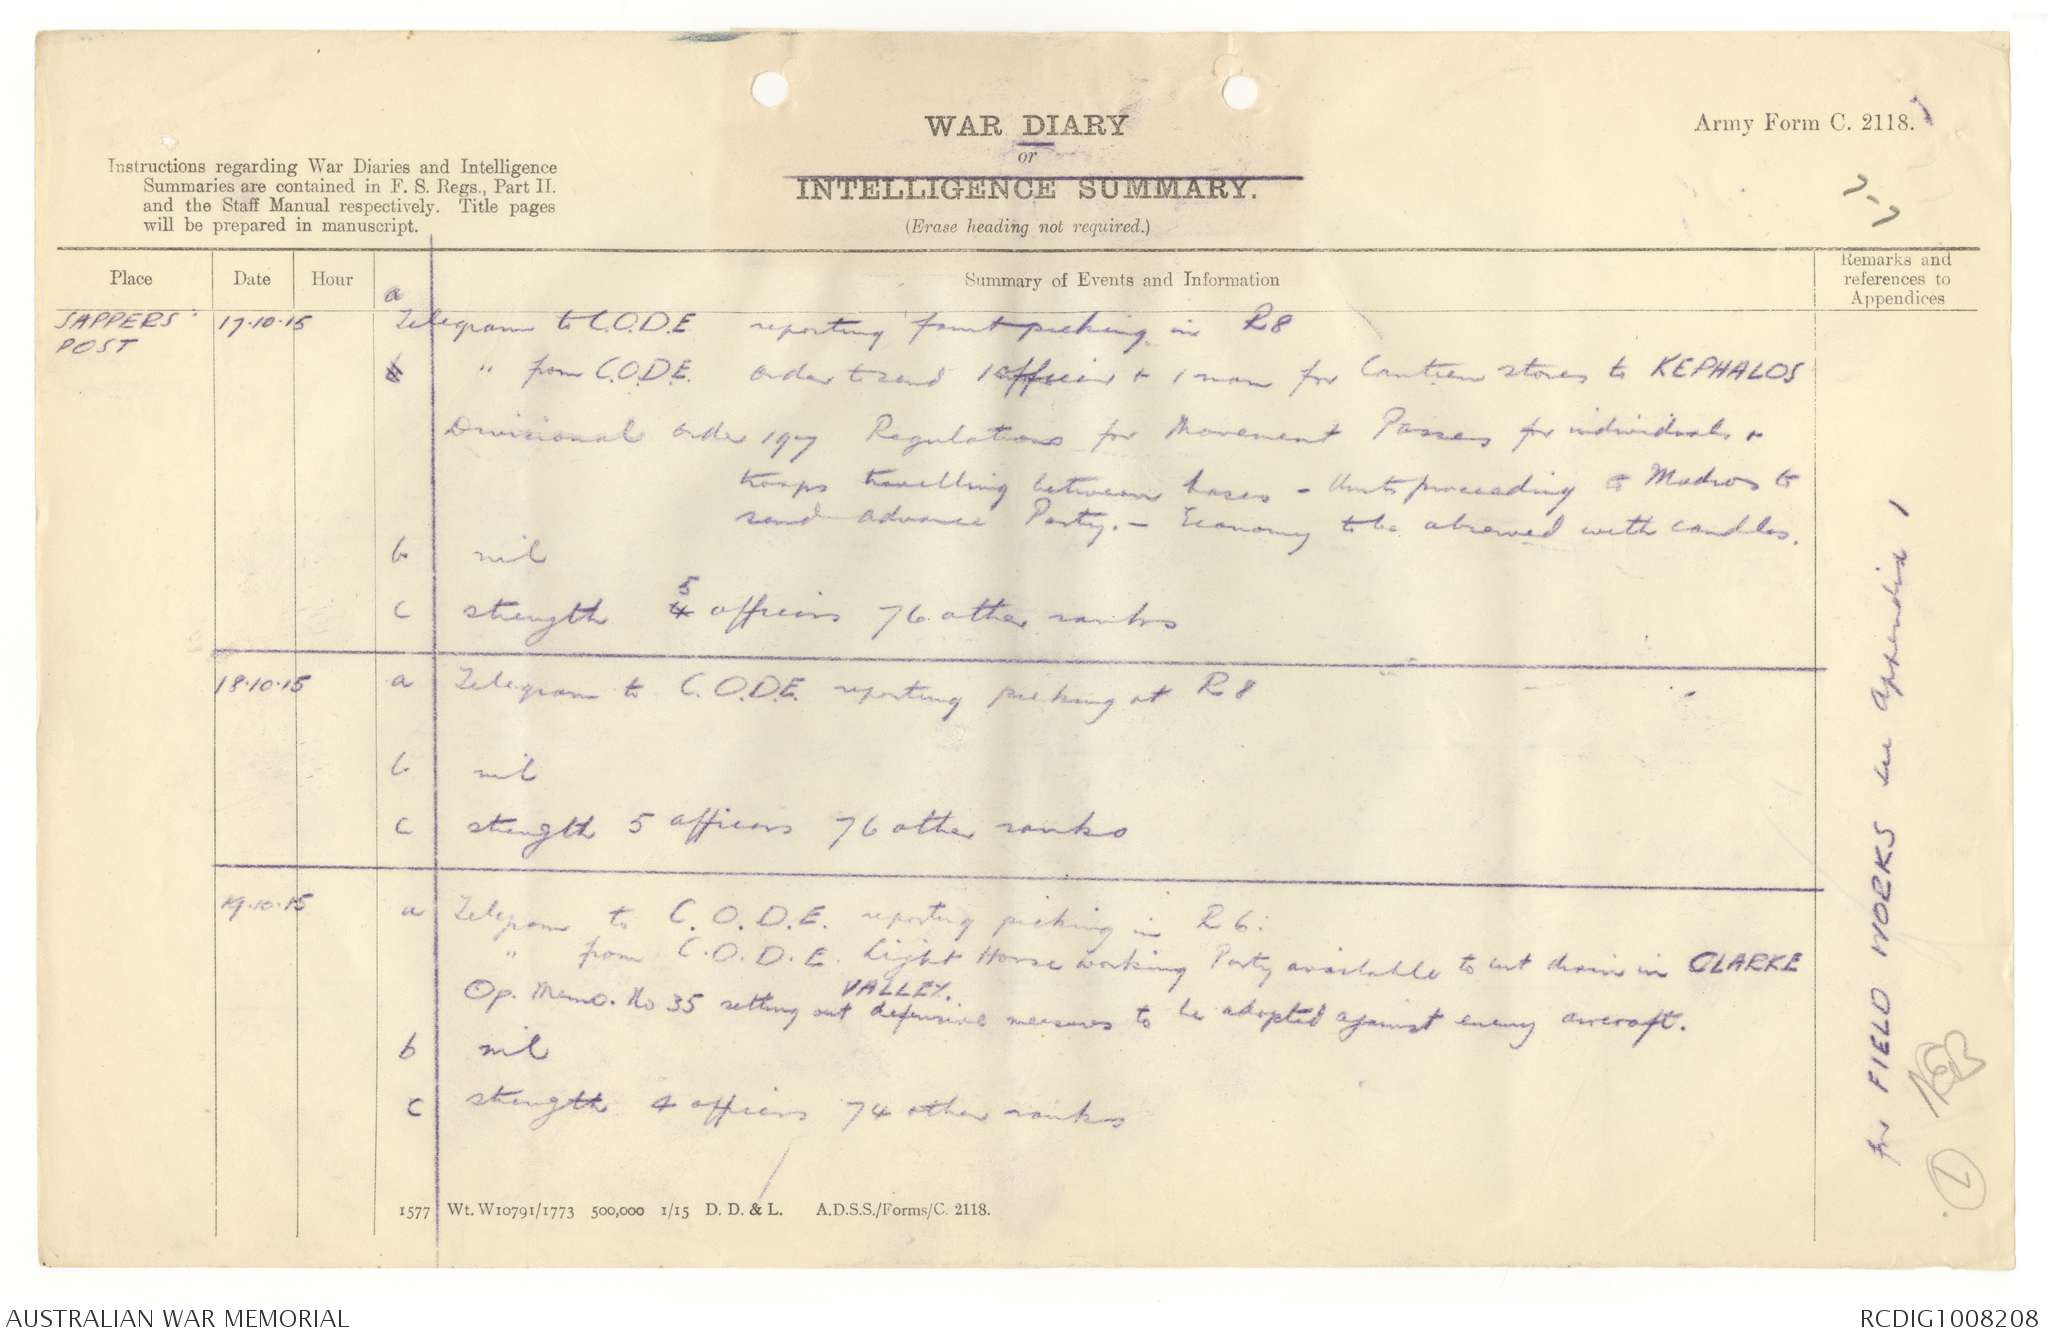 WAR DIARY
or
INTELLIGENCE SUMMARY.
(Erase heading not required.)
Army Form C. 2118.
Instructions regarding War Diaries and Intelligence
Summaries are contained in F. S. Regs., Part II.
and the Staff Manual respectively. Title pages
will be prepared in manuscript.
Place
Date
Hour
Summary of Events and Information
Remarks and
references to
Appendices
SAPPERS'
POST
17.10.15
a
Telegram to C.O.D.E reporting faint picking in R8
" from C.O.D.E. order to send 1 officer + 1 man for Canteen stores to KEPHALOS
Divisional order 197 Regulations for Movement Passes for individuals +
troops travelling between bases - Units proceeding to Mudros to
send advance Party. - Economy to be observed with candles.
b nil
c strength 5 officers 76 other ranks
18.10.15
a Telegram to C.O.D.E. reporting picking at R8
b nil
c strength 5 officers 76 other ranks
19.10.15
a Telegram to C.O.D.E. reporting picking in R6.
" from C.O.D.E. Light Horse working Party available to cut drain in CLARKE
VALLEY.
Op. Memo. No 35 setting out defensive measures to be adopted against enemy aircraft.
b nil
c strength 4 officers 74 other ranks
for FIELD WORKS see Appendix 1
1577 Wt. W10791/1773 500,000 1/15 D. D. & L. A.D.S.S./Forms/C. 2118.
AUSTRALIAN WAR MEMORIAL
RCDIG1008208